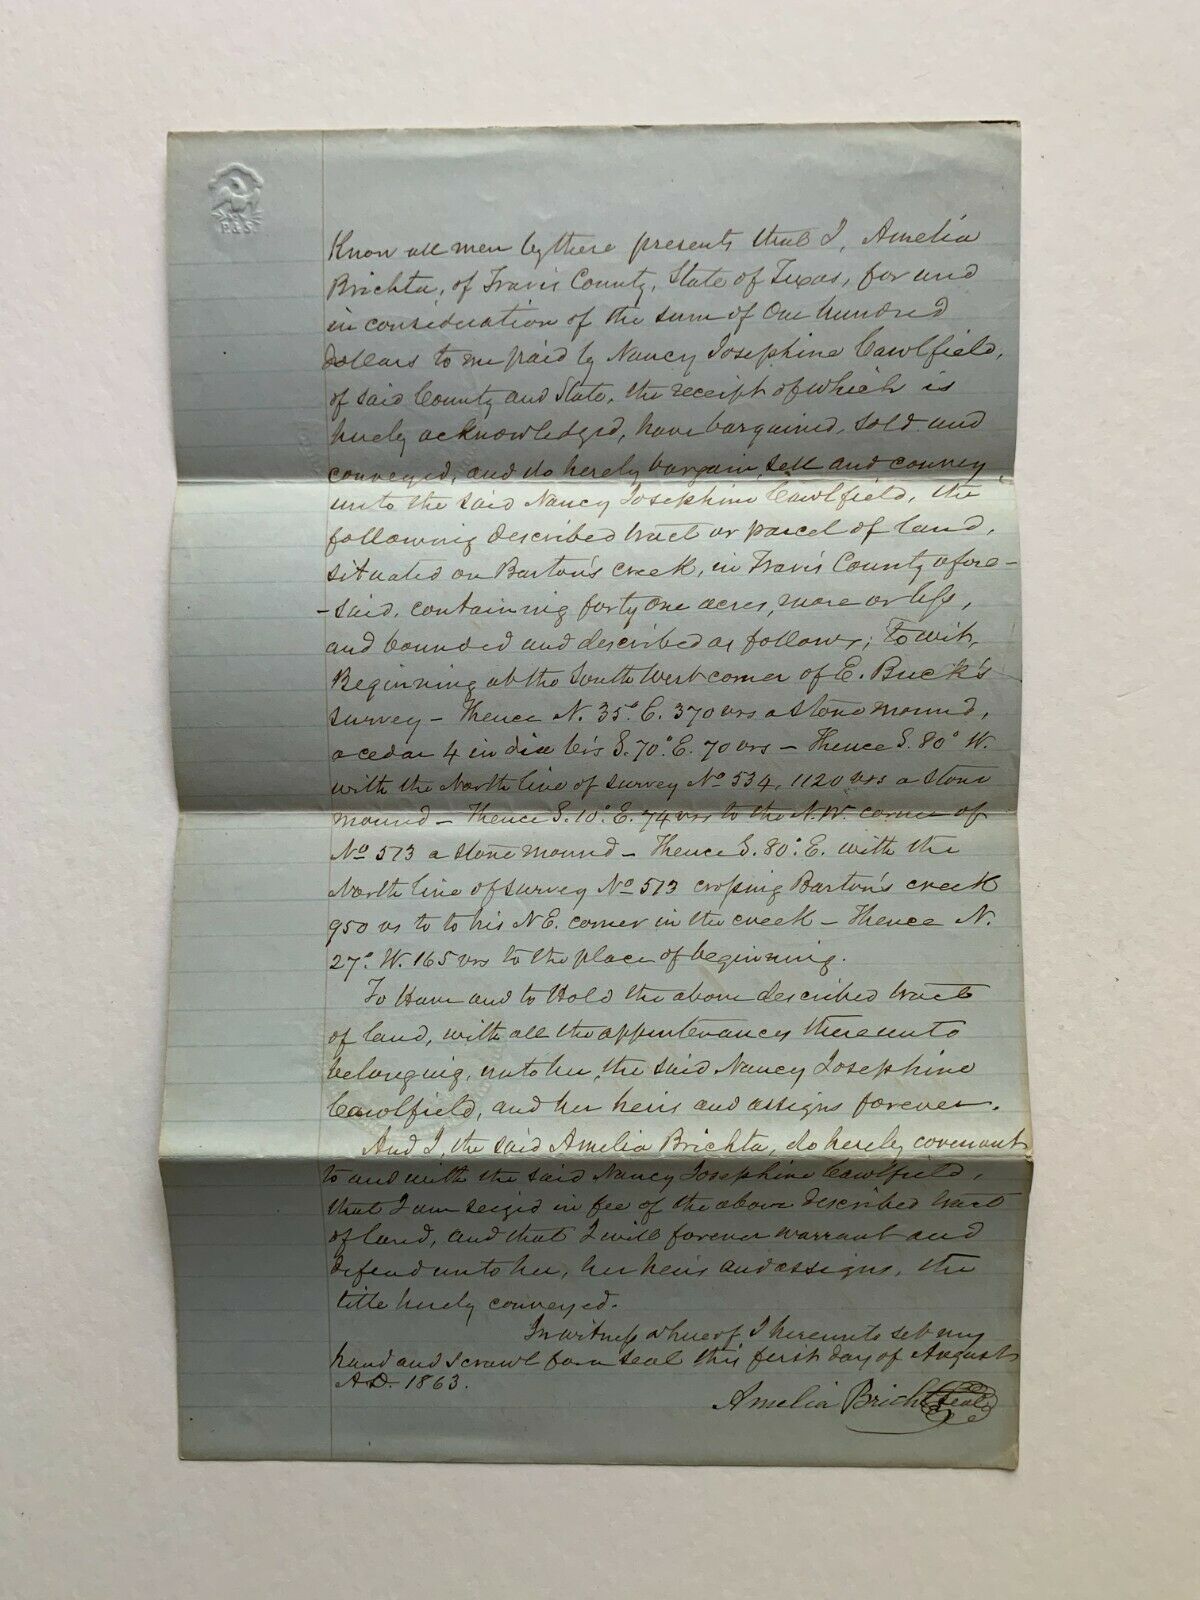 P. & S.
Know all men by these presents that I, Amelia
Brichta, of Travis County, State of Texas, for and
in consideration of the sum of One hundred
dollars to me paid by Nancy Josephine Cawlfield,
of said County and State, the receipt of which is
hereby acknowledged, have bargained, sold and
conveyed, and do hereby bargain, sell and convey
unto the said Nancy Josephine Cawlfield, the
following described tract or parcel of land,
situated on Barton's creek, in Travis County afore-
-said, containing forty one acres, more or less,
and bounded and described as follows; To wit,
Beginning at the South West corner of E. Buck's
survey - Thence N. 35° E. 370 vrs a stone mound,
a cedar 4 in dia brs S. 70° E. 70 vrs - Thence S. 80° W.
with the North line of survey No 534, 1120 vrs a stone
mound - Thence S. 10° E. 74 vrs to the N.W. corner of
No 513 a stone mound - Thence S. 80° E. with the
North line of survey No 513 crossing Barton's creek
950 vs to to his N E. corner in the creek - Thence N.
27° W. 165 vrs to the place of beginning.
To Have and to Hold the above described tract
of land, with all the appurtenances thereunto
belonging, unto her, the said Nancy Josephine
Cawlfield, and her heirs and assigns forever.
And I, the said Amelia Brichta, do hereby covenant
to and with the said Nancy Josephine Cawlfield,
that I am seized in fee of the above described tract
of land, and that I will forever warrant and
defend unto her, her heirs and assigns, the
title hereby conveyed.
In witness whereof, I hereunto set my
hand and scrawl for a seal this first day of August
A.D. 1863.
Amelia Brichta Seal